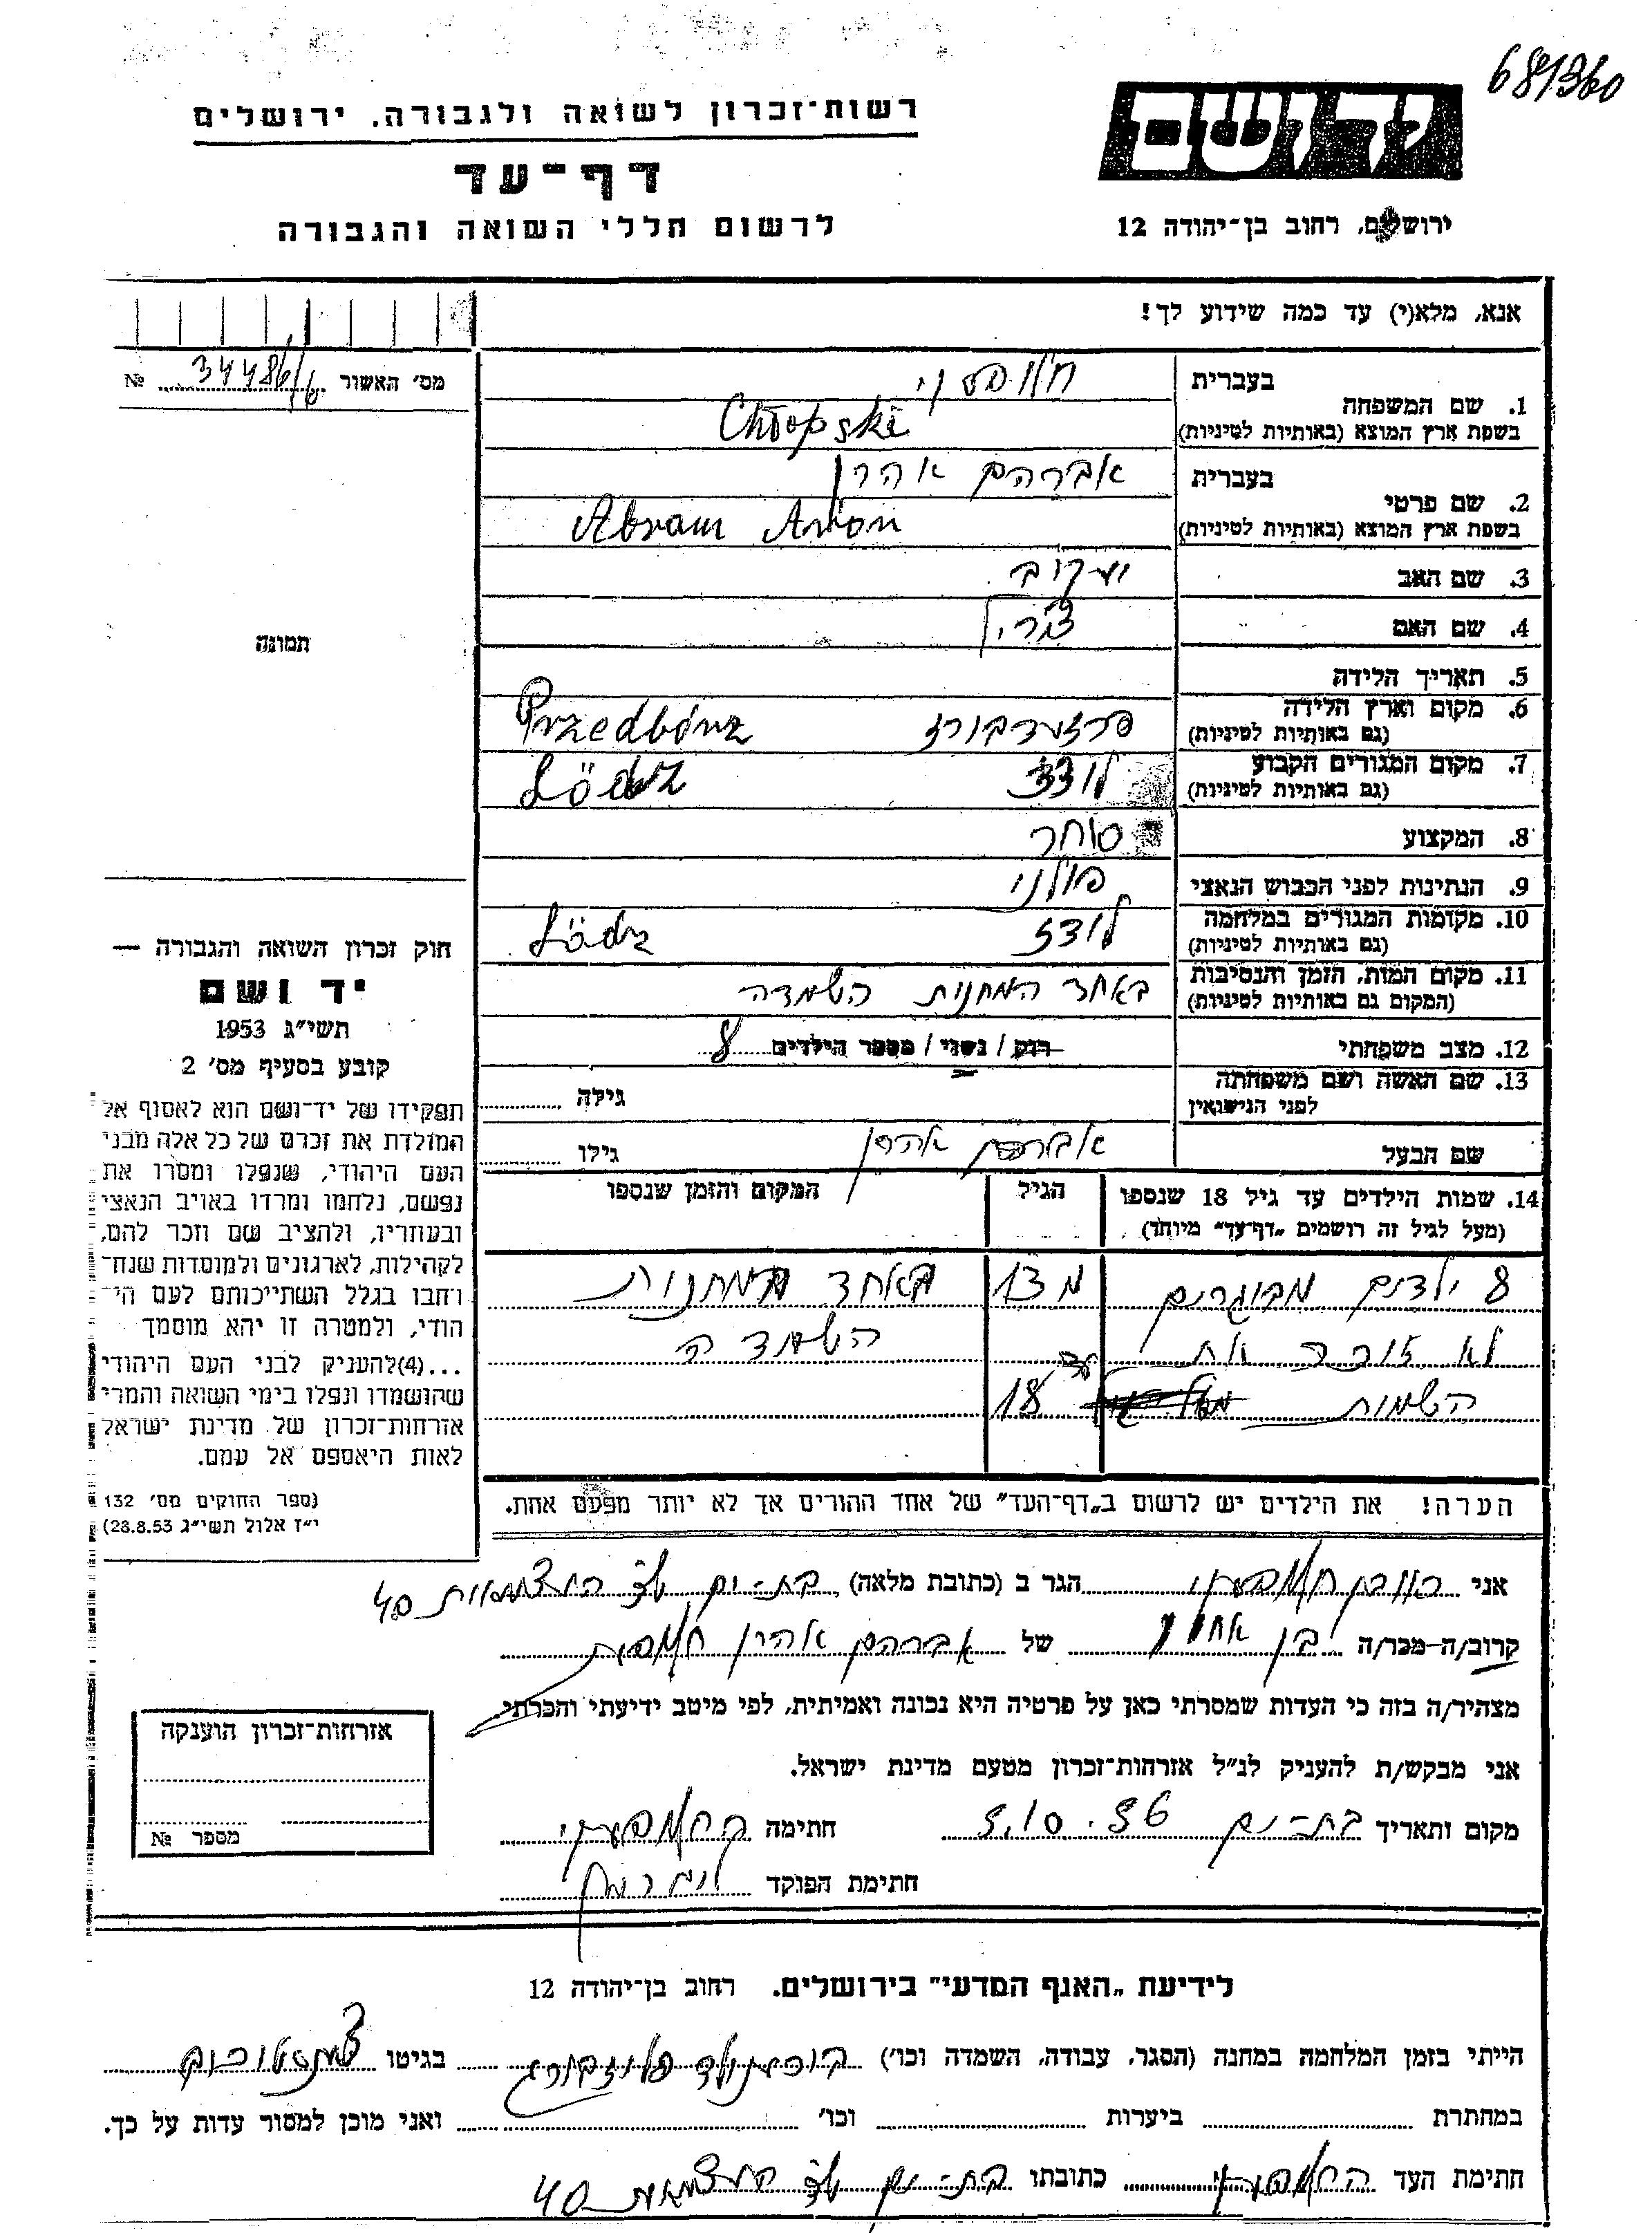 681360
רשות־זכרון לשואה ולגבורה, ירושלים
יד ושם
דף־עד
לרשום חללי השואה והגבורה
ירושלים, רחוב בן־יהודה 12
אנא, מלא(י) עד כמה שידוע לך!
מס' האשור 34486/ №
1. שם המשפחה
בעברית
בשפת ארץ המוצא (באותיות לטיניות) Chłopski
2. שם פרטי
בעברית אברהם אהרן
בשפת ארץ המוצא (באותיות לטיניות) Abram Aron
3. שם האב יעקוב
4. שם האם
5. תאריך הלידה
6. מקום וארץ הלידה
(גם באותיות לטיניות) Przedbórz
7. מקום המגורים הקבוע לודז
(גם באותיות לטיניות) Łódz
8. המקצוע סוחר
9. הנתינות לפני הכבוש הנאצי פולני
10. מקומות המגורים במלחמה לודז
(גם באותיות לטיניות) Łódz
11. מקום המות, הזמן והנסיבות באחד המחנות השמדה
(המקום גם באותיות לטיניות)
12. מצב משפחתי רוק / נשוי / מספר הילדים 8
13. שם האשה ושם משפחתה
לפני הנישואין גילה
שם הבעל אברהם אהרן גילו
14. שמות הילדים עד גיל 18 שנספו
(מעל לגיל זה רושמים "דף־עד" מיוחד)
הגיל
המקום והזמן שנספו
8 ילדים מבוגרים מ 13 באחד המחנות
לא זוכר את עד השמדה
השמות 18
הערה! את הילדים יש לרשום ב"דף־העד" של אחד ההורים אך לא יותר מפעם אחת.
תמונה
חוק זכרון השואה והגבורה —
יד ושם
תשי"ג 1953
קובע בסעיף מס' 2
תפקידו של יד־ושם הוא לאסוף אל
המולדת את זכרם של כל אלה מבני
העם היהודי, שנפלו ומסרו את
נפשם, נלחמו ומרדו באויב הנאצי
ובעוזריו, ולהציב שם וזכר להם,
לקהילות, לארגונים ולמוסדות שנח־
רבו בגלל השתייכותם לעם הי־
הודי, ולמטרה זו יהא מוסמך
...(4)להעניק לבני העם היהודי
שהושמדו ונפלו בימי השואה והמרי
אזרחות־זכרון של מדינת ישראל
לאות היאספם אל עמם.
(ספר החוקים מס' 132
י"ז אלול תשי"ג 28.8.53)
אני הגר ב (כתובת מלאה) בת-ים העצמאות 40
קרוב/ה מכר/ה בן אחיו של אברהם אהרן
מצהיר/ה בזה כי העדות שמסרתי כאן על פרטיה היא נכונה ואמיתית, לפי מיטב ידיעתי והכרתי.
אני מבקש/ת להעניק לנ"ל אזרחות־זכרון מטעם מדינת ישראל.
מקום ותאריך בת-ים 3.10.56 חתימה
חתימת הפוקד
אזרחות־זכרון הוענקה
מספר №
לידיעת "האגף המדעי" בירושלים. רחוב בן־יהודה 12
הייתי בזמן המלחמה במחנה (הסגר, עבודה, השמדה וכו') בגיטו
במחתרת ביערות וכו' ואני מוכן למסור עדות על כך.
חתימת העד כתובתו בת-ים העצמאות 40